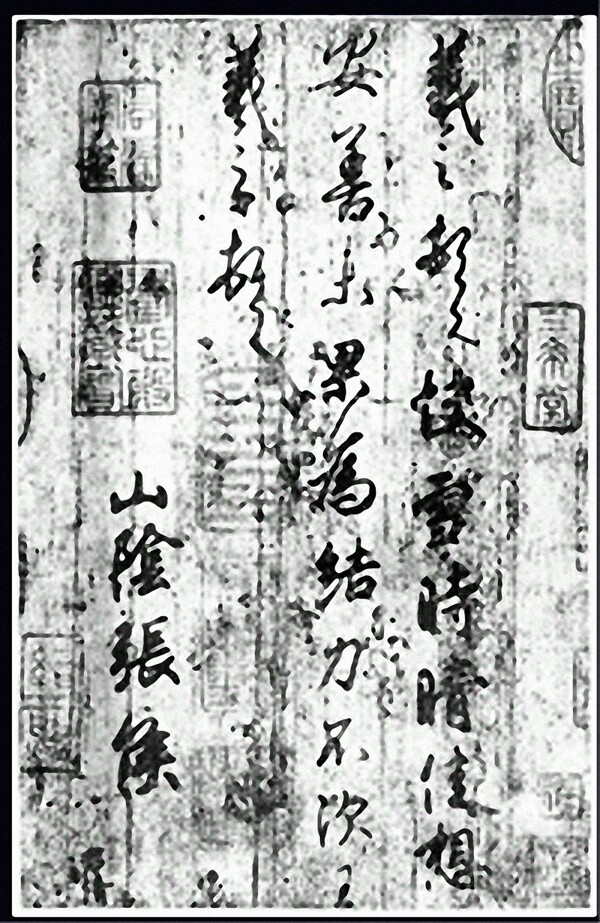 羲之頓首快雪時晴佳想
安善未果為結力不次王
羲之頓首
山陰張侯
三希堂